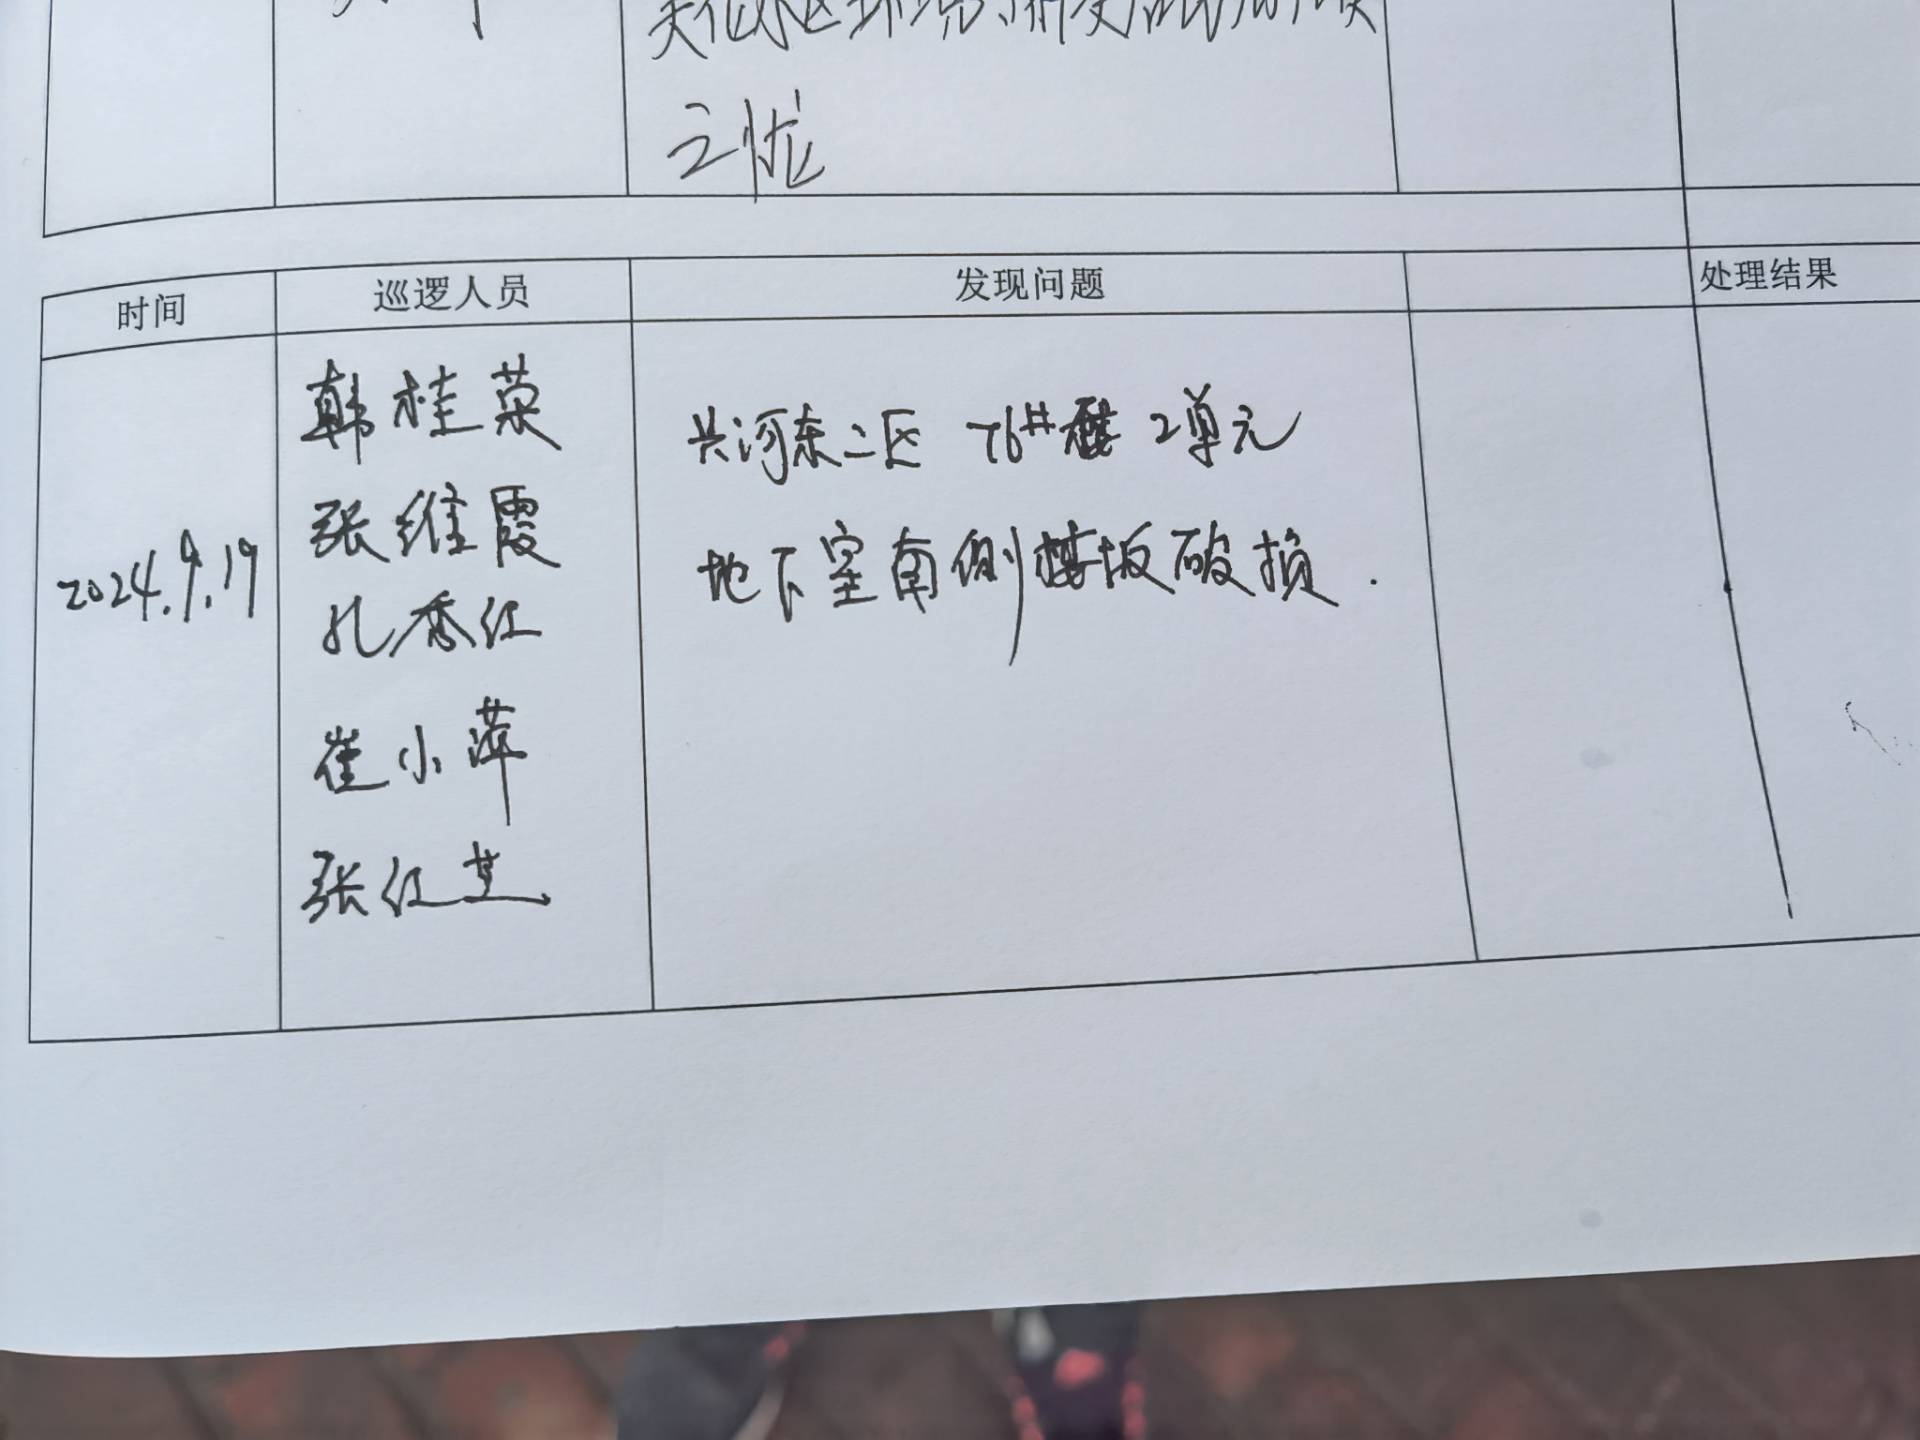 之忧
时间 巡逻人员 发现问题 处理结果
韩桂荣
张维霞
孔香红
崔小萍
张红芝
2024.9.19
兴河东二区 76#楼 2单元
地下室南侧楼板破损.